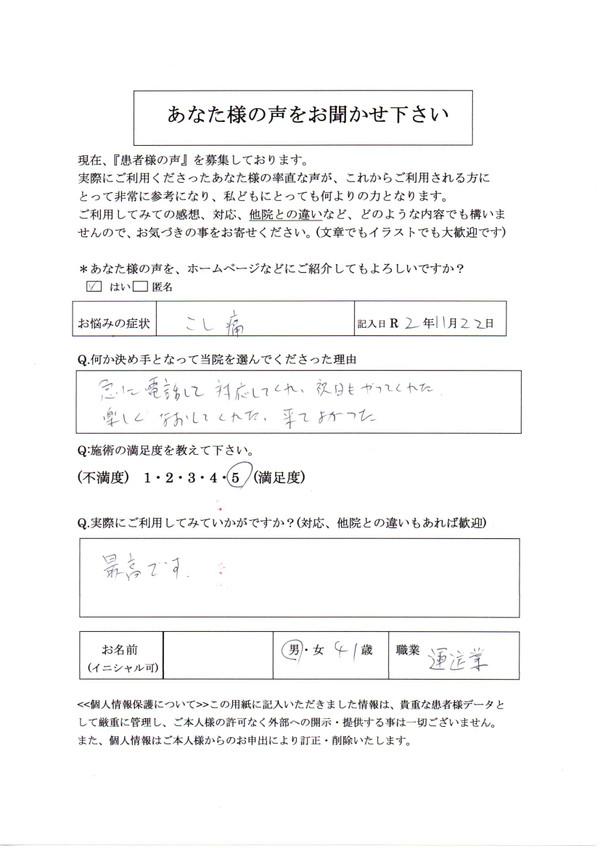 あなた様の声をお聞かせ下さい
現在、『患者様の声』を募集しております。
実際にご利用くださったあなた様の率直な声が、これからご利用される方に
とって非常に参考になり、私どもにとっても何よりの力となります。
ご利用してみての感想、対応、他院との違いなど、どのような内容でも構いま
せんので、お気づきの事をお寄せください。(文章でもイラストでも大歓迎です)
＊あなた様の声を、ホームページなどにご紹介してもよろしいですか？
☑ はい □ 匿名
お悩みの症状 こし痛 記入日 R 2年11月22日
Q.何か決め手となって当院を選んでくださった理由
急に電話して対応してくれ、祝日もやってくれた。
楽しくなおしてくれた、来てよかった
Q:施術の満足度を教えて下さい。
(不満度) 1・2・3・4・5 (満足度)
Q.実際にご利用してみていかがですか？(対応、他院との違いもあれば歓迎)
最高です。
お名前 男・女 41歳 職業 運送業
(イニシャル可)
<<個人情報保護について>>この用紙に記入いただきました情報は、貴重な患者様データと
して厳重に管理し、ご本人様の許可なく外部への開示・提供する事は一切ございません。
また、個人情報はご本人様からのお申出により訂正・削除いたします。